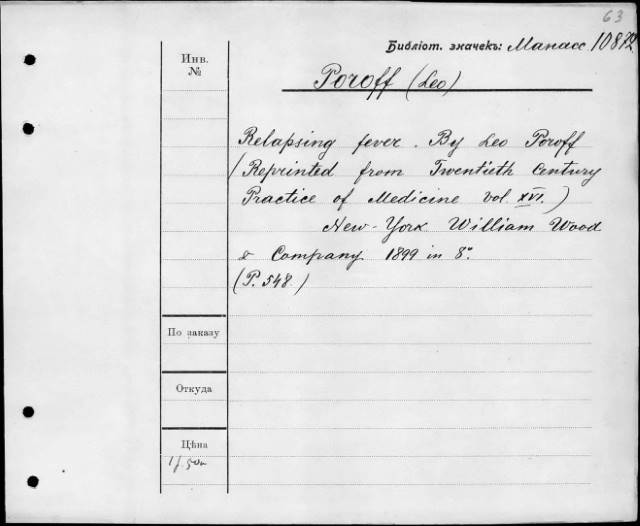 63
Библіот. значекъ: Манасс 10872
Инв.
№
Poroff (Leo)
Relapsing fever. By Leo Poroff
(Reprinted from Twentieth Century
Practice of Medicine vol. XVI.)
New-York William Wood
& Company 1899 in 8°.
(P. 548.)
По заказу
Откуда
Цѣна